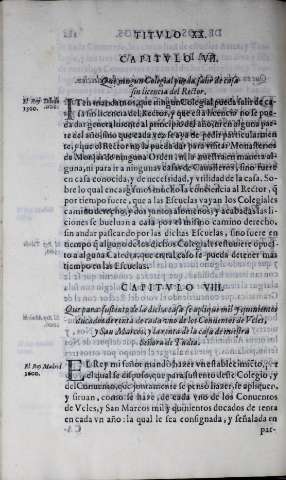 TITVLO XX.
CAPITVLO VII.
Que ningun Colegial pueda salir de casa
sin licencia del Rector.
El Rey Toledo
1560.
ITen mandamos, que ningun Colegial pueda salir de ca-
sa sin licencia del Rector, y que esta licencia no se pue-
da dar generalmente al principio del año, ni en alguna par
te del año, sino que cada vez se aya de pedir particularmen
te, y que el Rector no la pueda dar para visitar Monasterios
de Monjas de ninguna Orden ni a nuestra en manera al-
guna, ni para ir a ninguna casa de Caualleros, sino fuere
en casa conocida, y de necesidad, y vtilidad de la casa. So-
bre lo qual encargamos mucho la conciencia al Rector, q̃
por tiempo fuere, que a las Escuelas vayan los Colegiales
camino derecho, y dos juntos a lo menos, y acabadas las li-
ciones se bueluan a casa por el mismo camino derecho,
sin andar passeando por las dichas Escuelas, sino fuere en
tiempo q̃ alguno de los dichos Colegiales estuuiere opues
to a alguna Catedra, que en tal caso se pueda detener mas
tiempo en las Escuelas.
CAPITVLO VIII.
Que para sustento de la dicha casa se aplique mil y quinientos
ducados de renta de cada vno de los Conuentos de Vcles,
y San Marcos, y la renta de la casa de nuestra
Señora de Tudia.
El Rey Madrid
1600.
EL Rey mi señor mandò hazer vn establecimiẽto, en
el qual se dispuso, que para sustento deste Colegio, y
del Conuento, que juntamente se pensò hazer, se apliquen,
y siruan, como se haze, de cada vno de los Conuentos
de Vcles, y San Marcos mil y quinientos ducados de renta
en cada vn año: la qual le sea consignada, y señalada en
par-